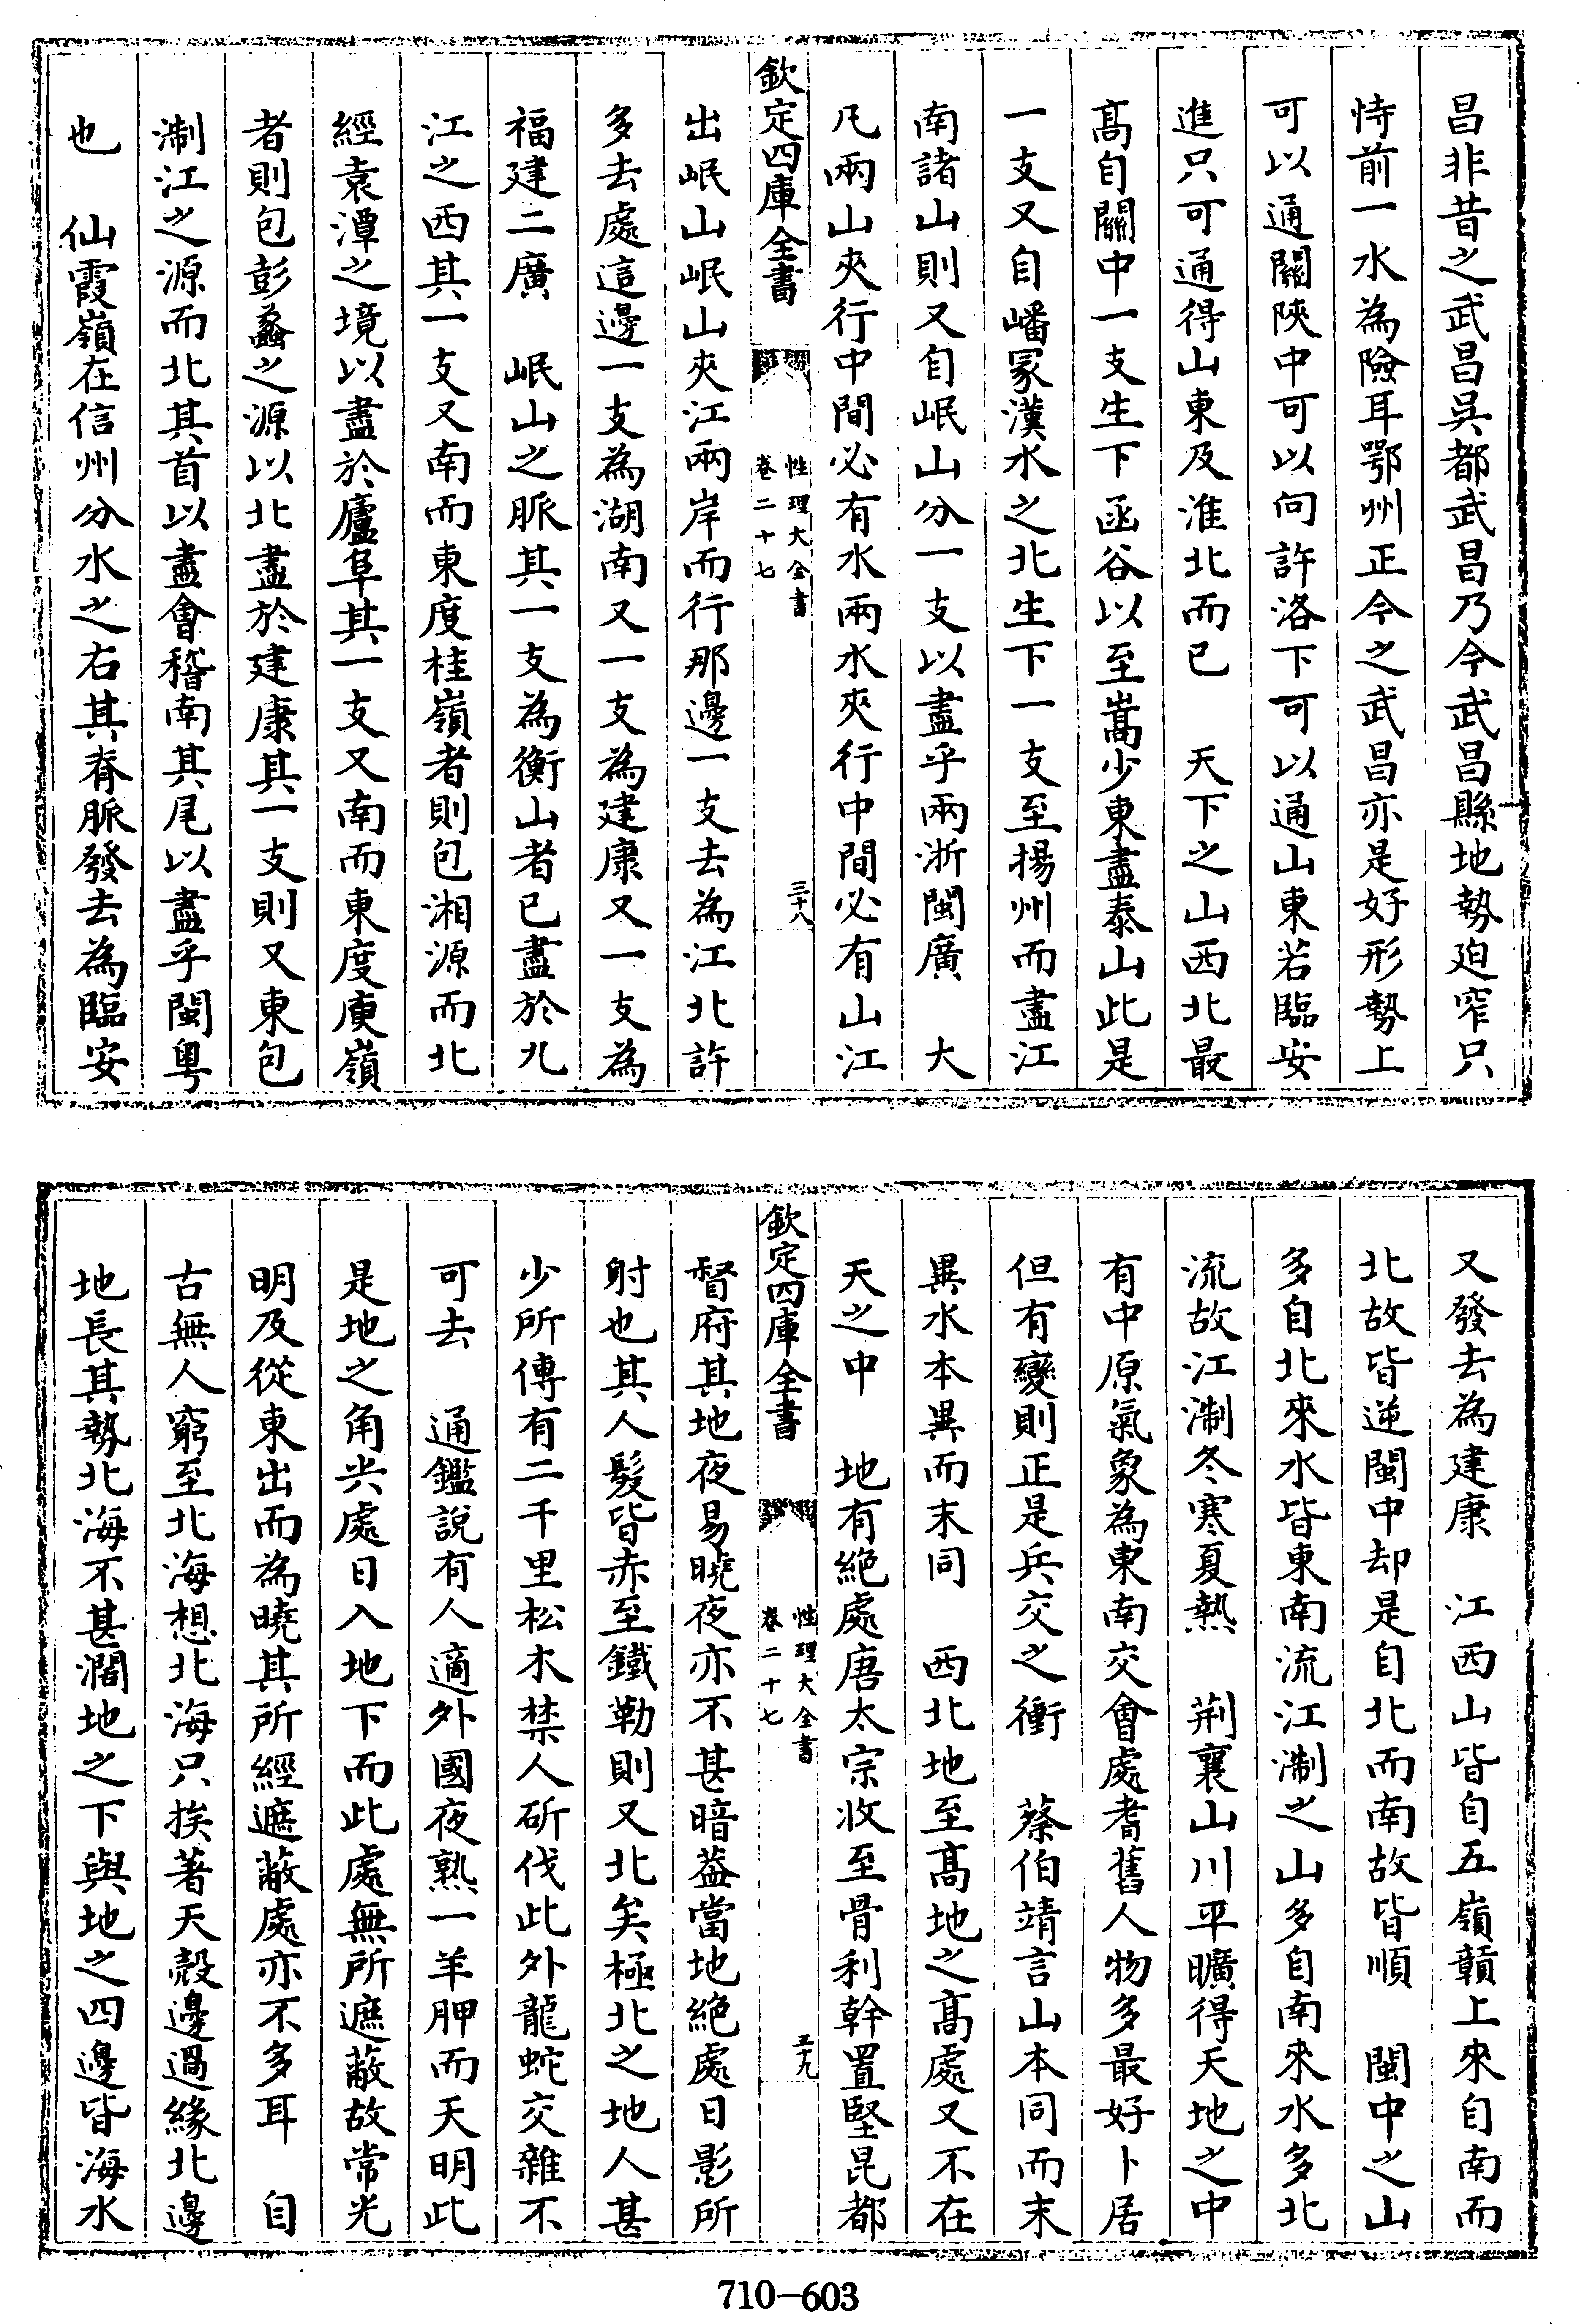 昌非昔之武昌吳都武昌乃今武昌縣地勢廹窄只
恃前一水為險耳鄂州正今之武昌亦是好形勢上
可以通關陜中可以向許洛下可以通山東若臨安
進只可通得山東及淮北而已　天下之山西北最
髙自關中一支生下函谷以至嵩少東盡泰山此是
一支又自嶓冢漢水之北生下一支至揚州而盡江
南諸山則又自岷山分一支以盡乎兩浙閩廣　大
凡兩山夾行中間必有水兩水夾行中間必有山江
欽定四庫全書　性理大全書　卷二十七　三十八
出岷山岷山夾江兩岸而行那邊一支去為江北許
多去處這邊一支為湖南又一支為建康又一支為
福建二廣　岷山之脈其一支為衡山者已盡於九
江之西其一支又南而東度桂嶺者則包湘源而北
經袁潭之境以盡於廬阜其一支又南而東度庾嶺
者則包彭蠡之源以北盡於建康其一支則又東包
淛江之源而北其首以盡會稽南其尾以盡乎閩粤
也　仙霞嶺在信州分水之右其脊脈發去為臨安
又發去為建康　江西山皆自五嶺贛上來自南而
北故皆逆閩中却是自北而南故皆順　閩中之山
多自北來水皆東南流江淛之山多自南來水多北
流故江淛冬寒夏熱　荆襄山川平曠得天地之中
有中原氣象為東南交會處耆舊人物多最好卜居
但有變則正是兵交之衝　蔡伯靖言山本同而末
異水本異而末同　西北地至髙地之髙處又不在
天之中　地有絶處唐太宗收至骨利幹置堅昆都
欽定四庫全書　性理大全書　卷二十七　三十九
督府其地夜易曉夜亦不甚暗葢當地絶處日影所
射也其人髮皆赤至鐵勒則又北矣極北之地人甚
少所傳有二千里松木禁人斫伐此外龍蛇交雜不
可去　通鑑説有人適外國夜熟一羊胛而天明此
是地之角尖處日入地下而此處無所遮蔽故常光
明及從東出而為曉其所經遮蔽處亦不多耳　自
古無人窮至北海想北海只挨著天殼邊過緣北邊
地長其勢北海不甚濶地之下與地之四邊皆海水
710-603